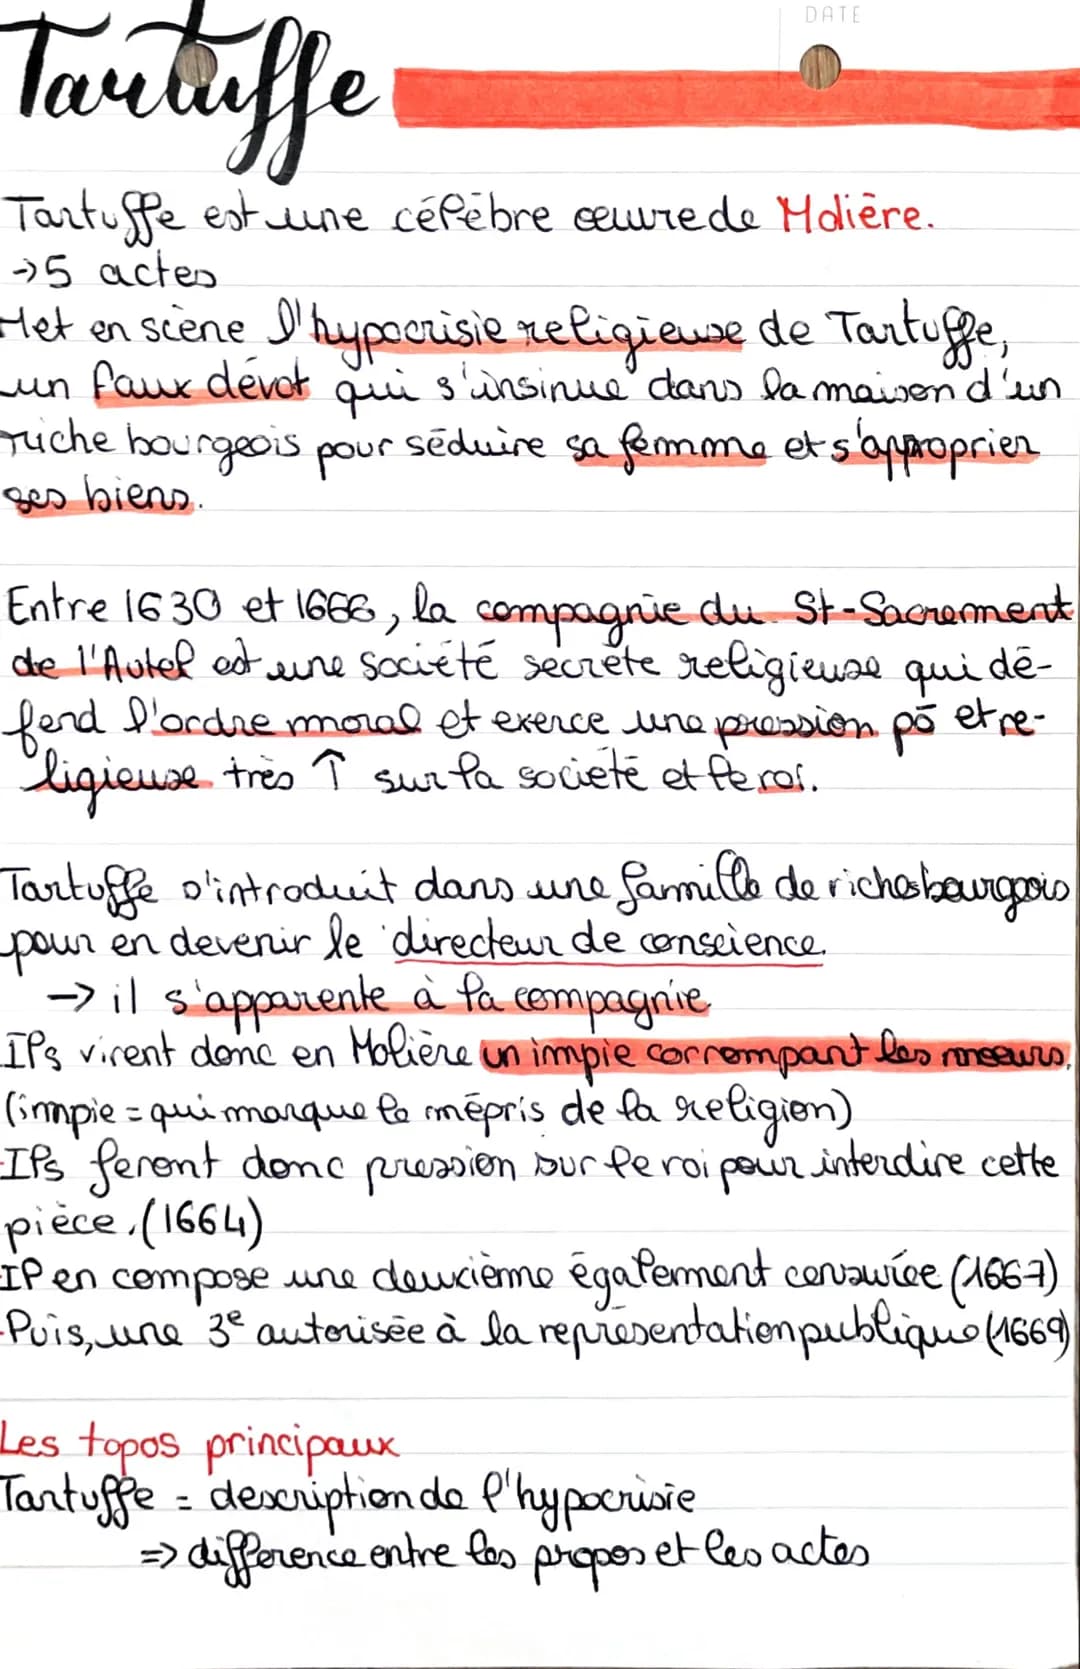 DATE
Tartuffe
Tartuffe est une célèbre œuvre de Molière.
→5 actes
Met en scène l'hypocrisie religieuse de Tartuffe,
un faux dévot qui s'insinue dans la maison d'un
riche bourgeois pour séduire sa femme et s'approprier
ses biens.
Entre 1630 et 1666, la compagnie du St-Sacrement
de l'Autel est une société secrète religieuse qui dé-
fend l'ordre moral et exerce une pression pô et re-
ligieuse très ↑ sur la société et le roi.
Tartuffe s'introduit dans une famille de riches bourgeois
pour en devenir le directeur de conscience.
→ il s'apparente à la compagnie
Ils virent donc en Molière un impie corrompant les mœurs.
(impie = qui marque le mépris de la religion)
Ils feront donc pression sur le roi pour interdire cette
pièce. (1664)
Il en compose une deuxième également censurée (1667)
Puis, une 3e autorisée à la représentation publique (1669)
Les topos principaux
Tartuffe = description de l'hypocrisie
=> différence entre les propos et les actes